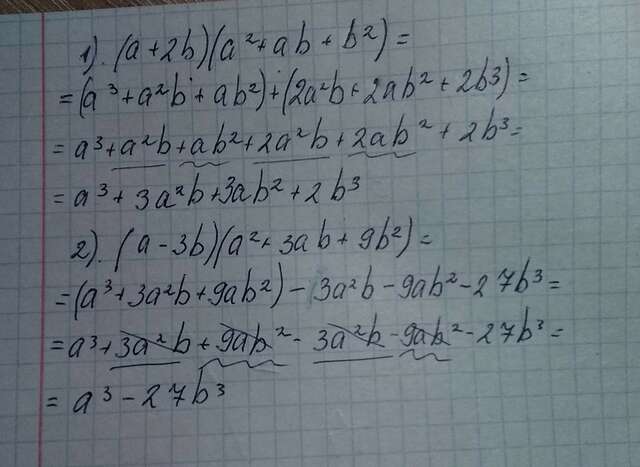 1). (a+2b)(a²+ab+b²)=
=(a³+a²b+ab²)+(2a²b+2ab²+2b3)=
=a³+a²b+ab²+2a²b+2ab²+2b³=
=a³+3a²b+3ab²+2b³
2). (a-3b)(a²+3ab+9b²)=
=(a³+3a²b+9ab²)-3a²b-9ab²-27b³=
=a³+3a²b+9ab²-3a²b-9ab²-27b³=
=a³-27b³